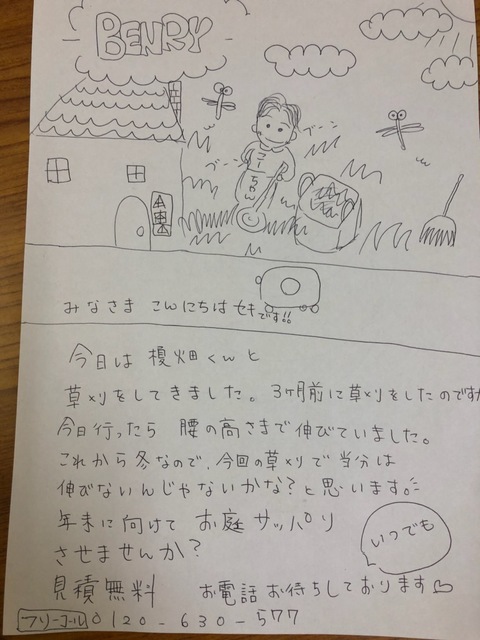 BENRY
ブーン
ブーン
みなさま こんにちは セキです!!
今日は 榎畑くんと
草メリをしてきました。3ヶ月前に草メリをしたのですが
今日行ったら 腰の高さまで伸びていました。
これから冬なので、今回の草メリで当分は
伸びないんじゃないかな?と思います。
年末に向けて お庭サッパリ
させませんか?
いつでも
見積無料 お電話お待ちしております♡
フリーコール 0120-630-577